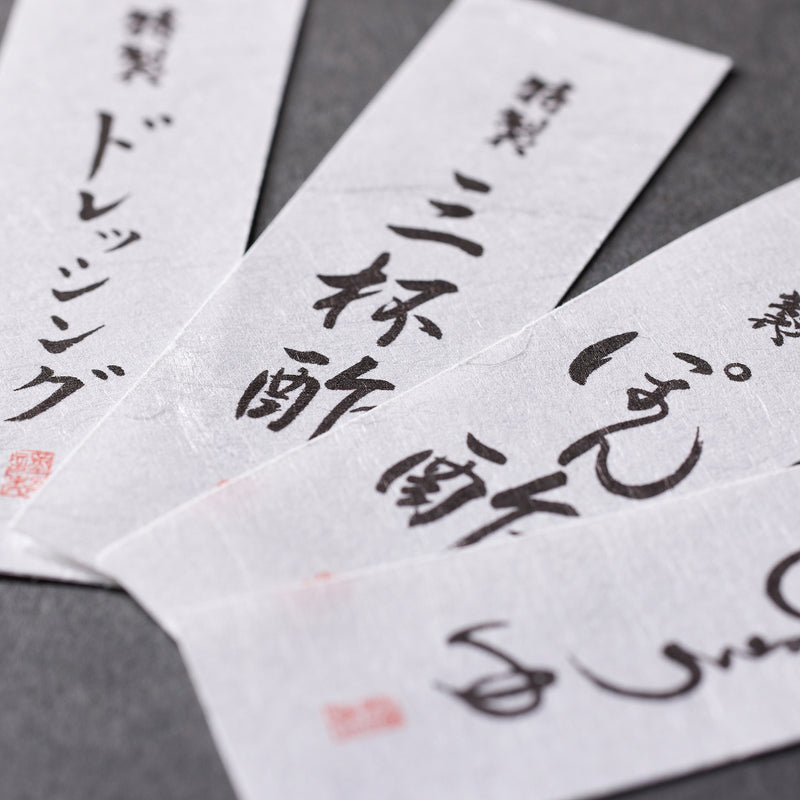 特製
ドレッシング
特製
三杯酢
製
ぽん酢
しょうゆ